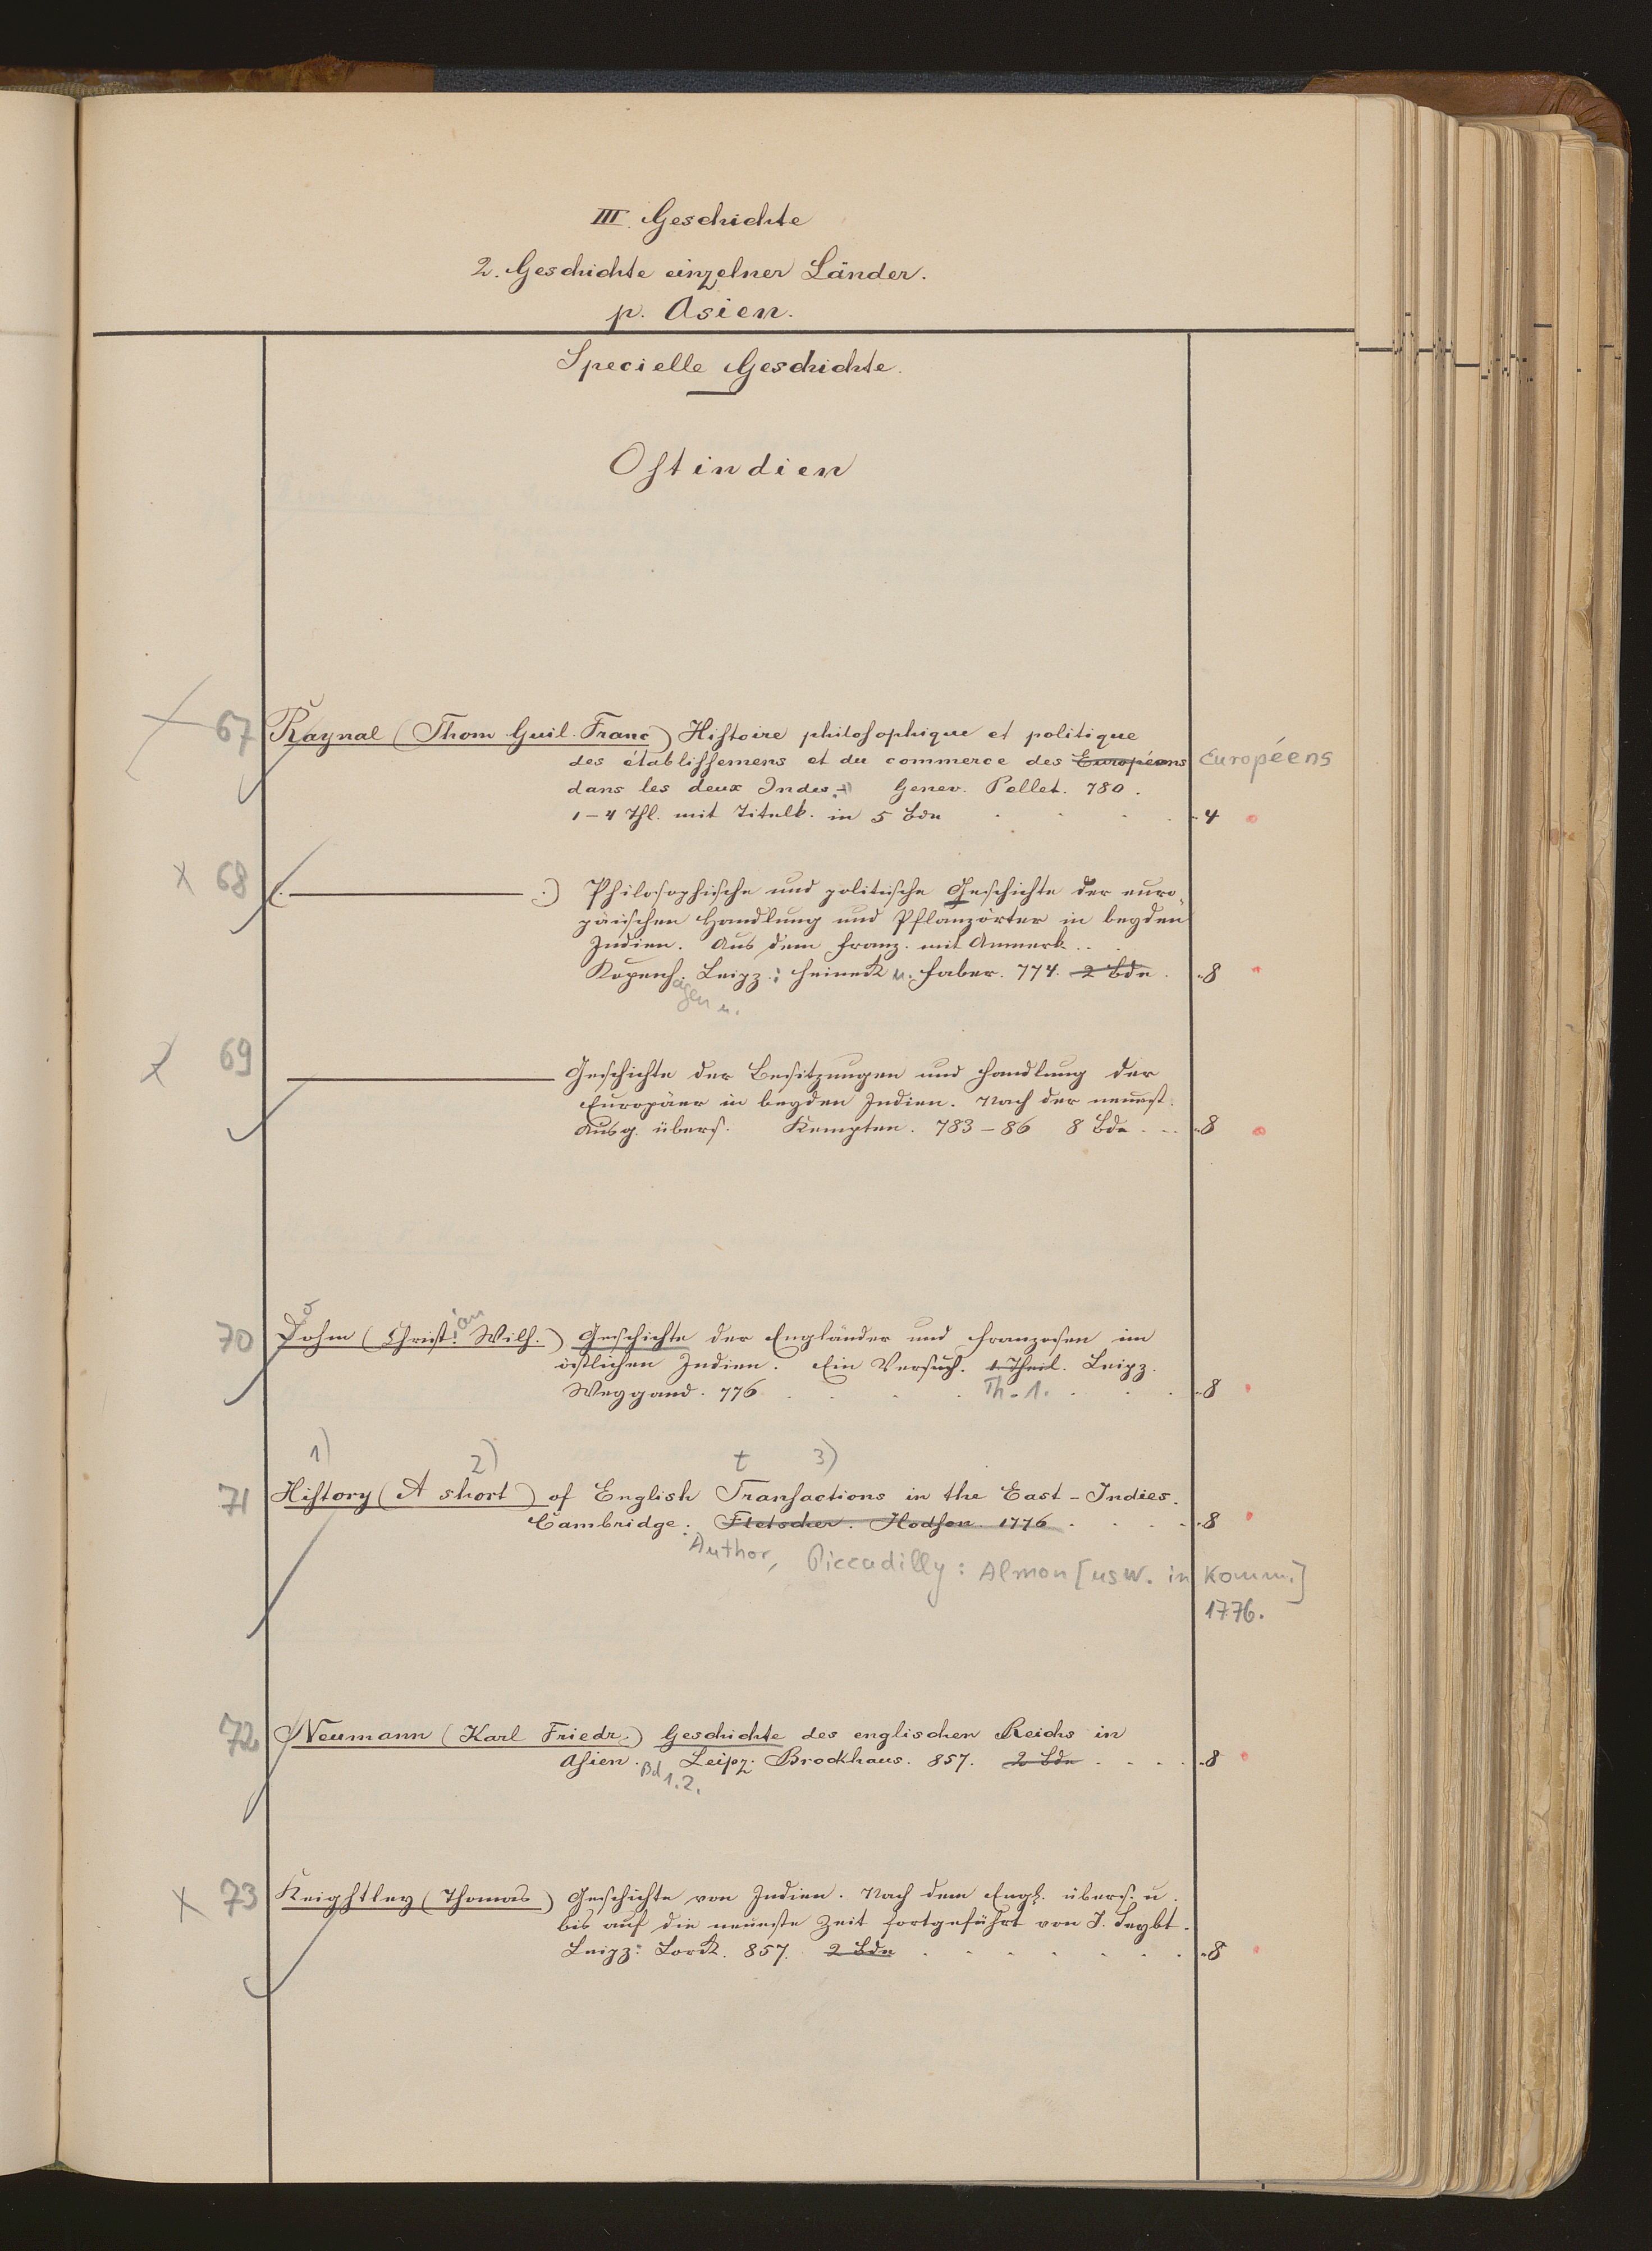 III. Geschichte
2. Geschichte einzelner Länder.
p. Asien.
Specielle Geschichte.
Ostindien
67 Raynal (Thom. Guil. Franc) Histoire philosophique et politique
des établissemens et du commerce des Européens Européens
dans les deux Indes. Genev. Pellet. 780.
1-4 Thl. mit Titelk. in 5 Bde . . . . 4
68 (. ——— .) Philosophische und politische Geschichte der euro-
päischen Handlung und Pflanzörter in beyden
Indien. Aus dem Franz. mit Anmerk. . .
Kopenh. Leipz.: Heineck u. Faber. 774. 2 Bde. 8
agen u.
69 ——— Geschichte der Besitzungen und Handlung der
Europäer in beyden Indien. Nach der neuest.
Ausg. übers. Kempten. 783-86 8 Bde . . . 8
70 Dohm (Christ. Wilh.) Geschichte der Engländer und Franzosen im
ian
östlichen Indien. Ein Versuch. 1. Theil. Leipz.
Weygand. 776 . . . . Th. 1. . . . 8
1) 2) t 3)
71 History (A short) of English Transactions in the East-Indies.
Cambridge: Fletscher. Hodson. 1776 . . . . 8
Author, Piccadilly: Almon [usw. in Komm.]
1776.
72 Neumann (Karl Friedr.) Geschichte des englischen Reichs in
Asien. Leipz. Brockhaus. 857. 2 Bde . . . . 8
Bd 1.2.
73 Keightley (Thomas) Geschichte von Indien. Nach dem Engl. übers. u.
bis auf die neueste Zeit fortgeführt von J. Seybt.
Leipz: Lorck. 857. 2 Bde . . . . . . . 8